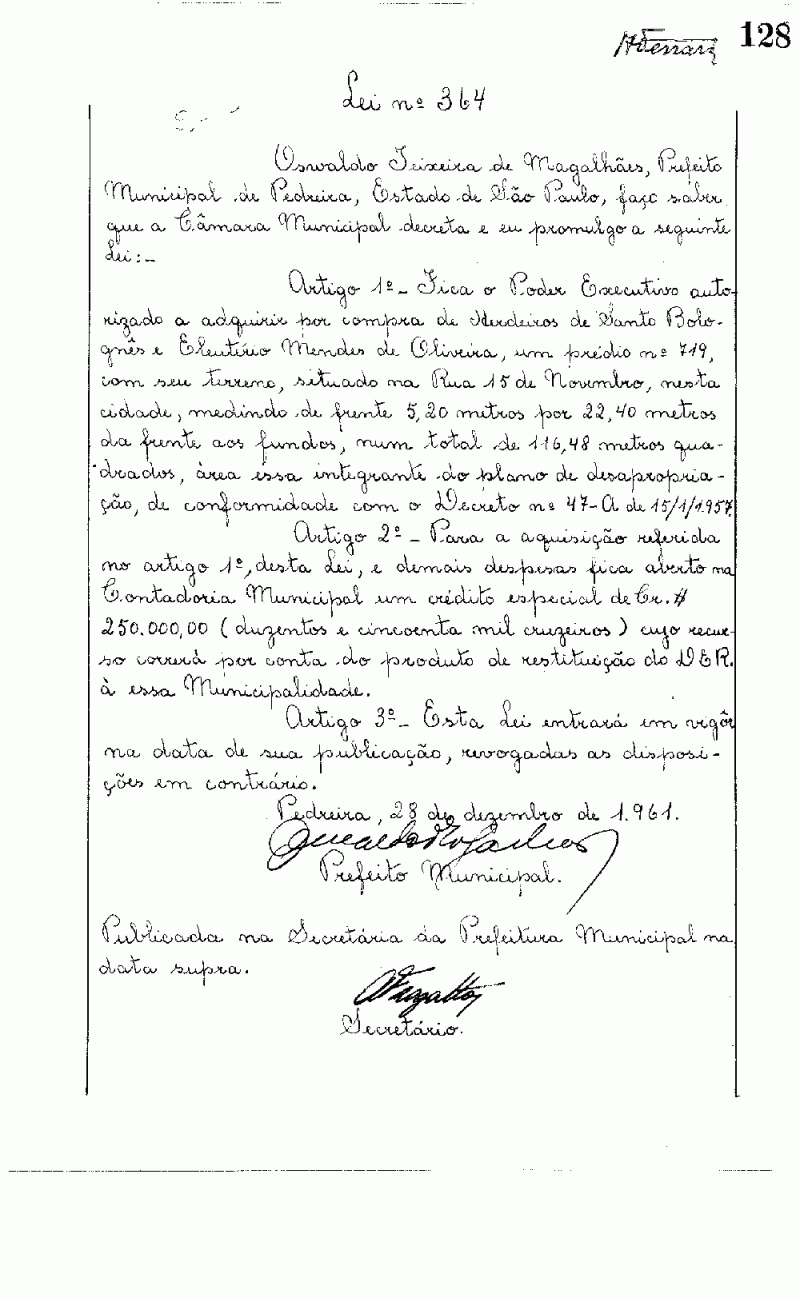 128
Lei nº 364
Oswaldo Teixeira de Magalhães, Prefeito
Municipal de Pedreira, Estado de São Paulo, faço saber
que a Câmara Municipal decreta e eu promulgo a seguinte
Lei:-
Artigo 1º- Fica o Poder Executivo auto-
rizado a adquirir por compra de Herdeiros de Santo Bolo-
gnês e Eleutério Mendes de Oliveira, um prédio nº 719,
com seu terreno, situado na Rua 15 de Novembro, nesta
cidade, medindo de frente 5,20 metros por 22,40 metros
da frente aos fundos, num total de 116,48 metros qua-
drados, área essa integrante do plano de desapropria-
ção, de conformidade com o Decreto nº 47-A de 15/1/1957.
Artigo 2º- Para a aquisição referida
no artigo 1º, desta Lei, e demais despesas fica aberto na
Contadoria Municipal um crédito especial de Cr.$
250.000,00 (duzentos e cincoenta mil cruzeiros) cujo recur-
so correrá por conta do produto de restituição do D.E.R.
à essa Municipalidade.
Artigo 3º- Esta Lei entrará em vigôr
na data de sua publicação, revogadas as disposi-
ções em contrário.
Pedreira, 28 de dezembro de 1.961.
Prefeito Municipal.
Publicada na Secretária da Prefeitura Municipal na
data supra.
Secretário.